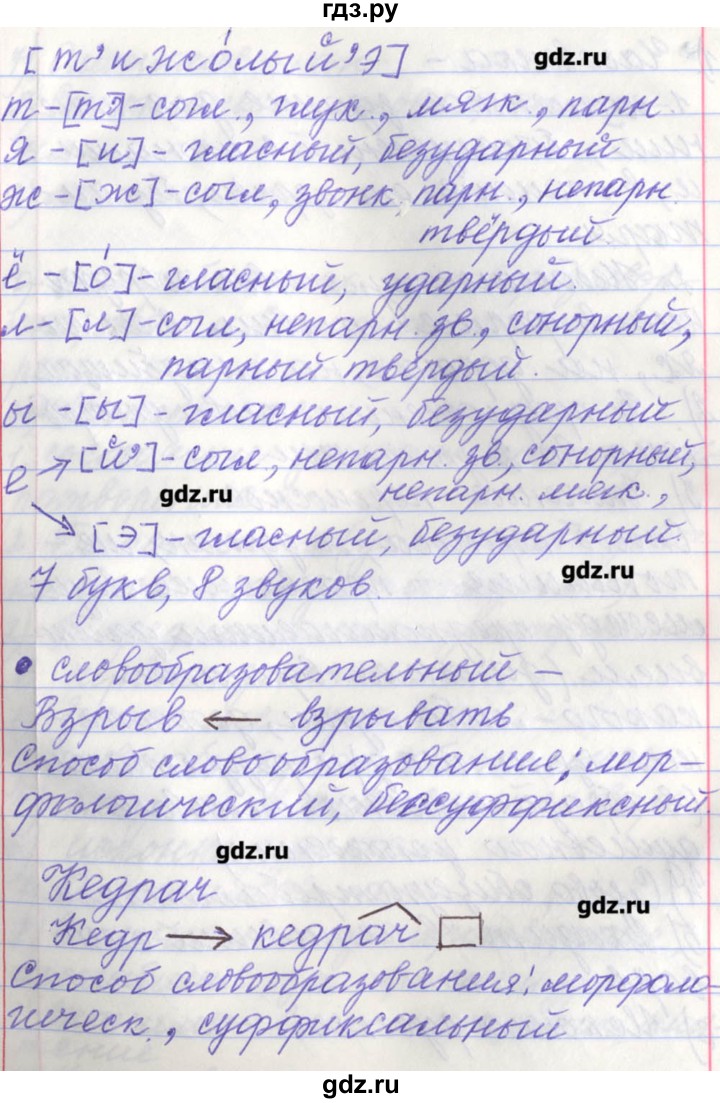 гдз.ру
[т’ижо́лый’э]
gdz.ru
т - [т’] - согл., глух., мягк., парн.
я - [и] - гласный, безударный
ж - [ж] - согл, звонк. парн., непарн.
твёрдый.
ё - [о́] - гласный, ударный.
л - [л] - согл, непарн. зв., сонорный,
парный твёрдый.
ы - [ы] - гласный, безударный.
е → [й’] - согл., непарн. зв., сонорный,
gdz.ru
непарн. мяг.,
→ [э] - гласный, безударный.
gdz.ru
7 букв, 8 звуков.
• словообразовательный –
Взрыв ← взрывать
Способ словообразования: мор-
фологический, бессуффиксный.
gdz.ru
Кедрач
gdz.ru
Кедр → кедрач
Способ словообразования: морфоло-
гическ., суффиксальный
gdz.ru